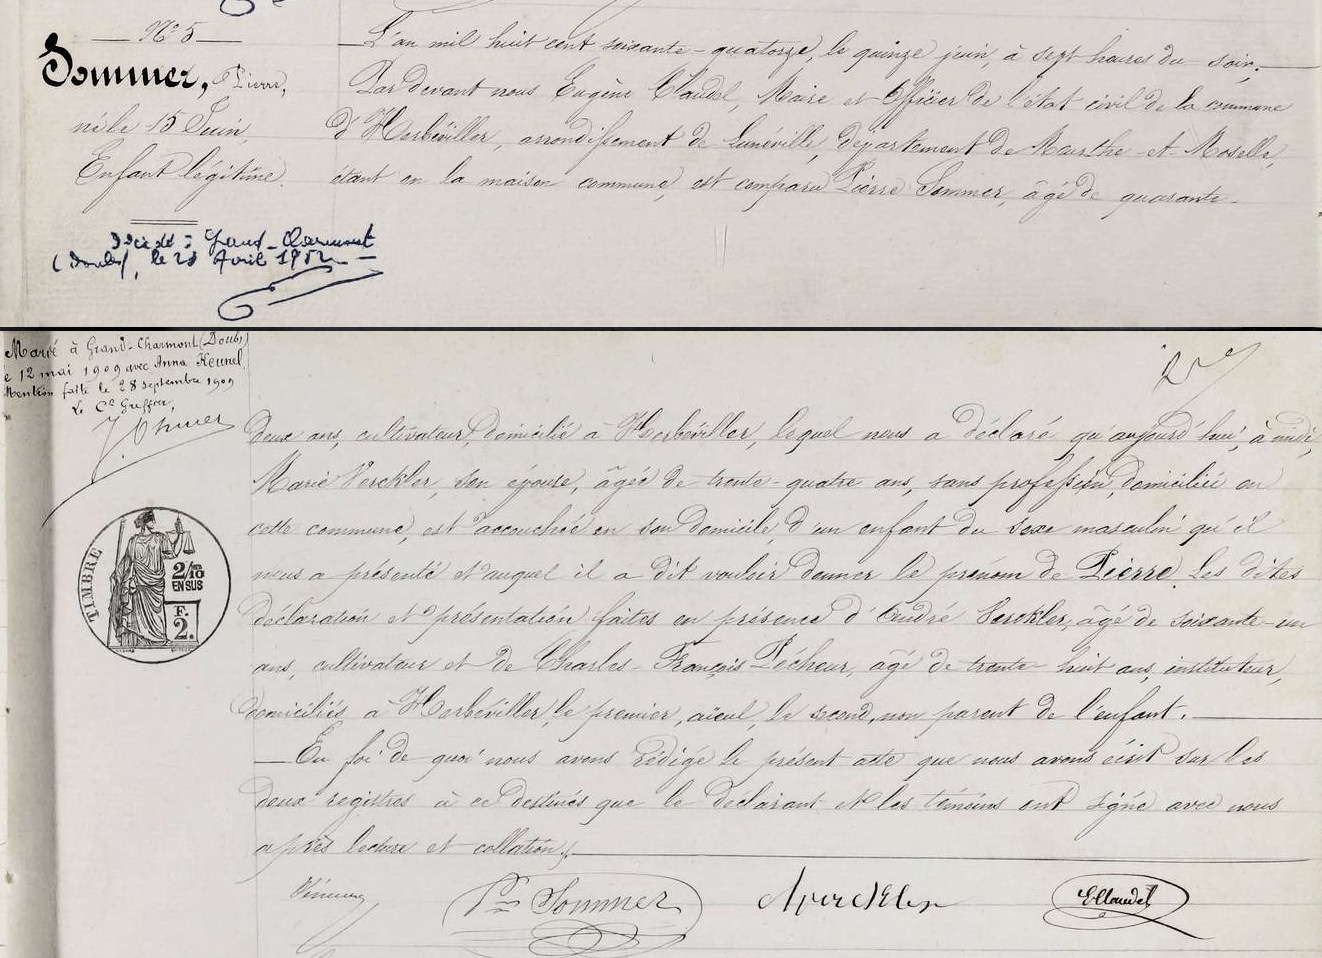 N° 5
Sommer, Pierre,
né le 15 Juin,
Enfant légitime.
L'an mil huit cent soixante-quatorze, le quinze juin, à sept heures du soir,
Par devant nous Eugène Claudel, Maire et Officier de l'état civil de la commune
d'Herbéviller, arrondissement de Lunéville, département de Meurthe-et-Moselle,
étant en la maison commune, est comparu Pierre Sommer, âgé de quarante-
Décédé à Grand-Charmont
(Doubs), le 28 Avril 1952
Marié à Grand-Charmont (Doubs)
le 12 mai 1909 avec Anna Keunel.
Mention faite le 28 septembre 1909
Le Cs Greffier,
deux ans, cultivateur, domicilié à Herbéviller, lequel nous a déclaré qu'aujourd'hui, à midi,
Marie Verckler, son épouse, âgée de trente-quatre ans, sans profession, domiciliée en
cette commune, est accouchée en son domicile, d'un enfant du sexe masculin qu'il
nous a présenté et auquel il a dit vouloir donner le prénom de Pierre. Les dites
déclaration et présentation faites en présence d'André Verckler, âgé de soixante-un
ans, cultivateur et de Charles-François Pêcheur, âgé de trente huit ans, instituteur,
domiciliés à Herbéviller, le premier, aïeul, le second, non parent de l'enfant.
En foi de quoi nous avons rédigé le présent acte que nous avons écrit sur les
deux registres à ce destinés que le déclarant et les témoins ont signé avec nous
après lecture et collation.
TIMBRE
2/10
EN SUS
F.
2.
Pre Sommer
A verckler
EClaudel